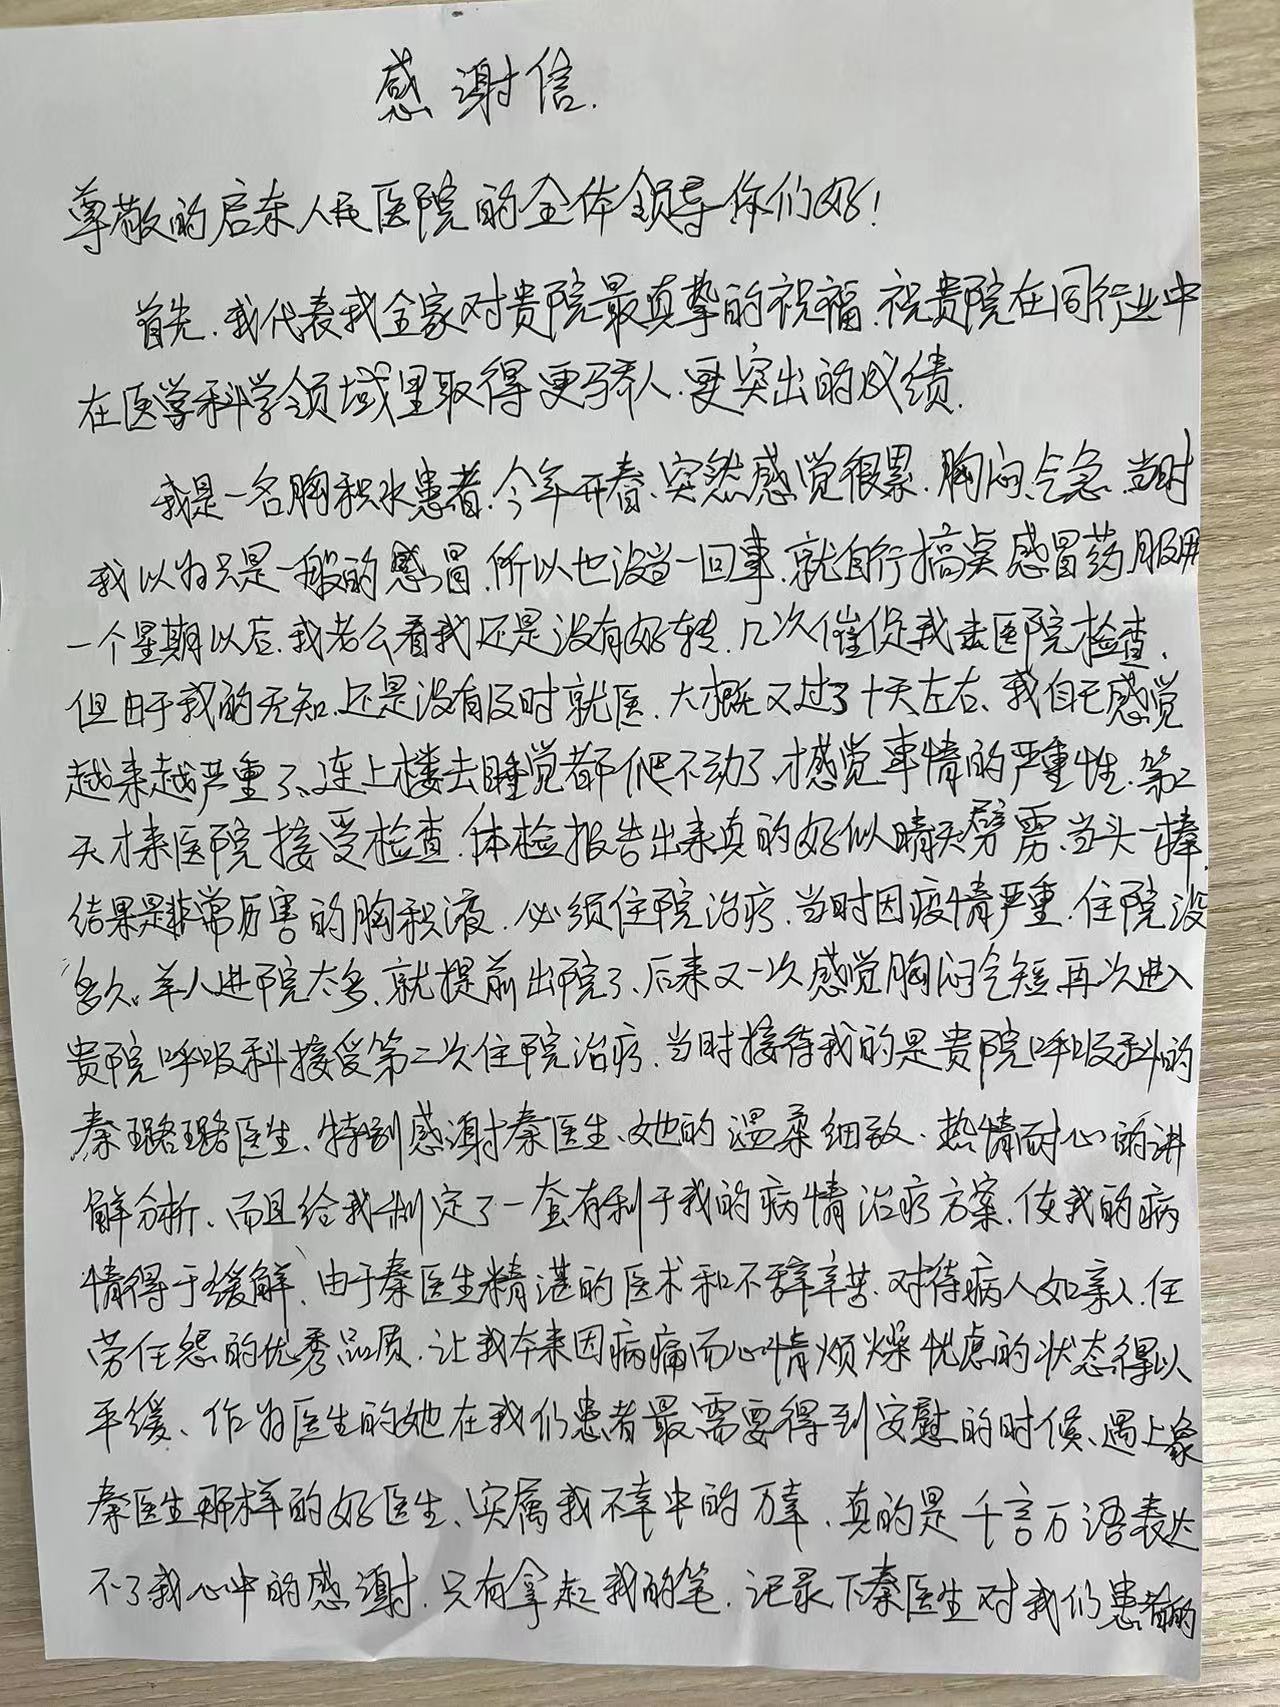 感谢信.
尊敬的启东人民医院的全体领导你们好!
首先.我代表我全家对贵院最真挚的祝福.祝贵院在同行业中
在医学科学领域里取得更骄人.更突出的成绩.
我是一名胸积水患者.今年开春、突然感觉很累.胸闷、气急、当时
我以为只是一般的感冒.所以也没当一回事.就自行搞点感冒药服用
一个星期以后.我老公看我还是没有好转.几次催促我去医院检查、
但由于我的无知.还是没有及时就医.大概又过了十天左右、我自己感觉
越来越严重了、连上楼去睡觉都爬不动了、才感觉事情的严重性.第二
天才来医院接受检查.体检报告出来真的好似晴天劈雳.当头一棒.
结果是非常厉害的胸积液.必须住院治疗.当时因疫情严重.住院没
多久。羊人进院太多、就提前出院了、后来又一次感觉胸闷气短、再次进入
贵院呼吸科接受第二次住院治疗.当时接待我的是贵院呼吸科的
秦璐璐医生、特别感谢秦医生、她的温柔细致、热情耐心的讲
解分析、而且给我制定了一套有利于我的病情治疗方案.使我的病
情得于缓解、由于秦医生精湛的医术和不辞辛苦.对待病人如亲人.任
劳任怨的优秀品质.让我本来因病痛而心情烦燥忧虑的状态得以
平缓、作为医生的她在我们患者最需要得到安慰的时候、遇上象
秦医生那样的好医生、实属我不幸中的万幸、真的是千言万语表达
不了我心中的感谢.只有拿起我的笔.记录下秦医生对我们患者的